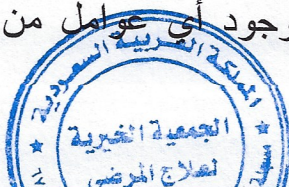 وجود أي عوامل من
المملكة العربية السعودية
الجمعية الخيرية
لعلاج المرضى